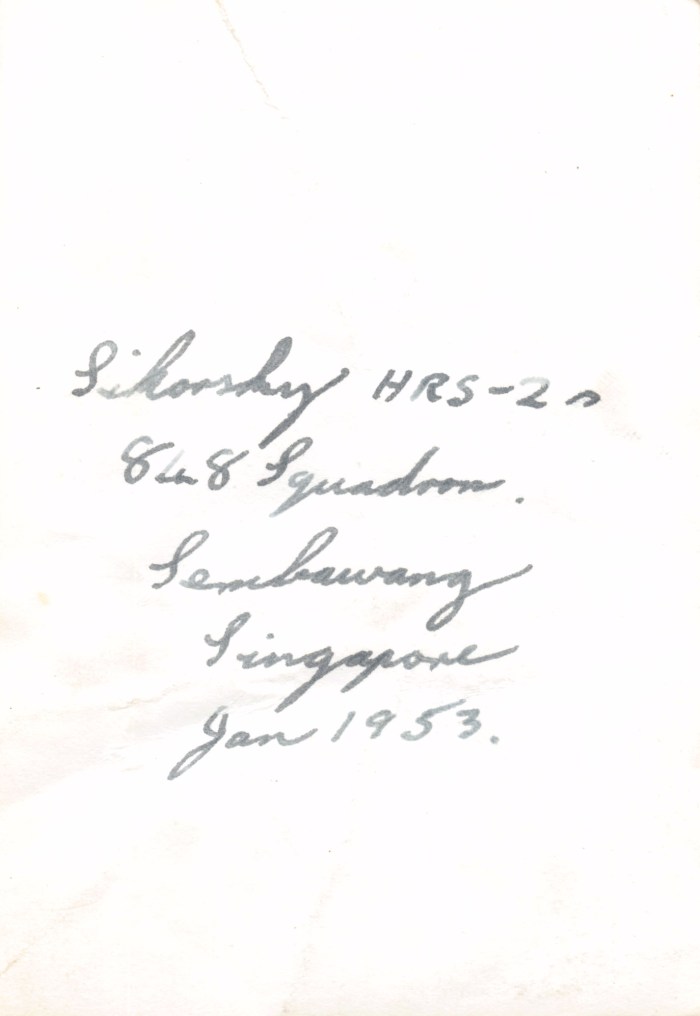 Sikorsky HRS-2s
848 Squadron.
Sembawang
Singapore
Jan 1953.